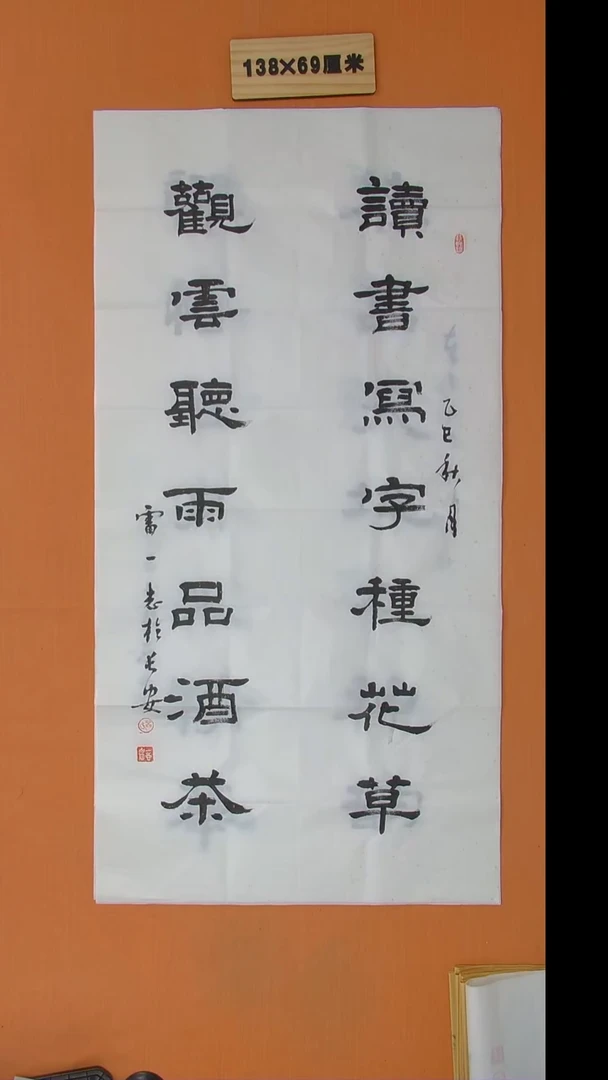 138×69厘米
乙巳秋月
讀書寫字種花草
觀雲聽雨品酒茶
雷一志於长安